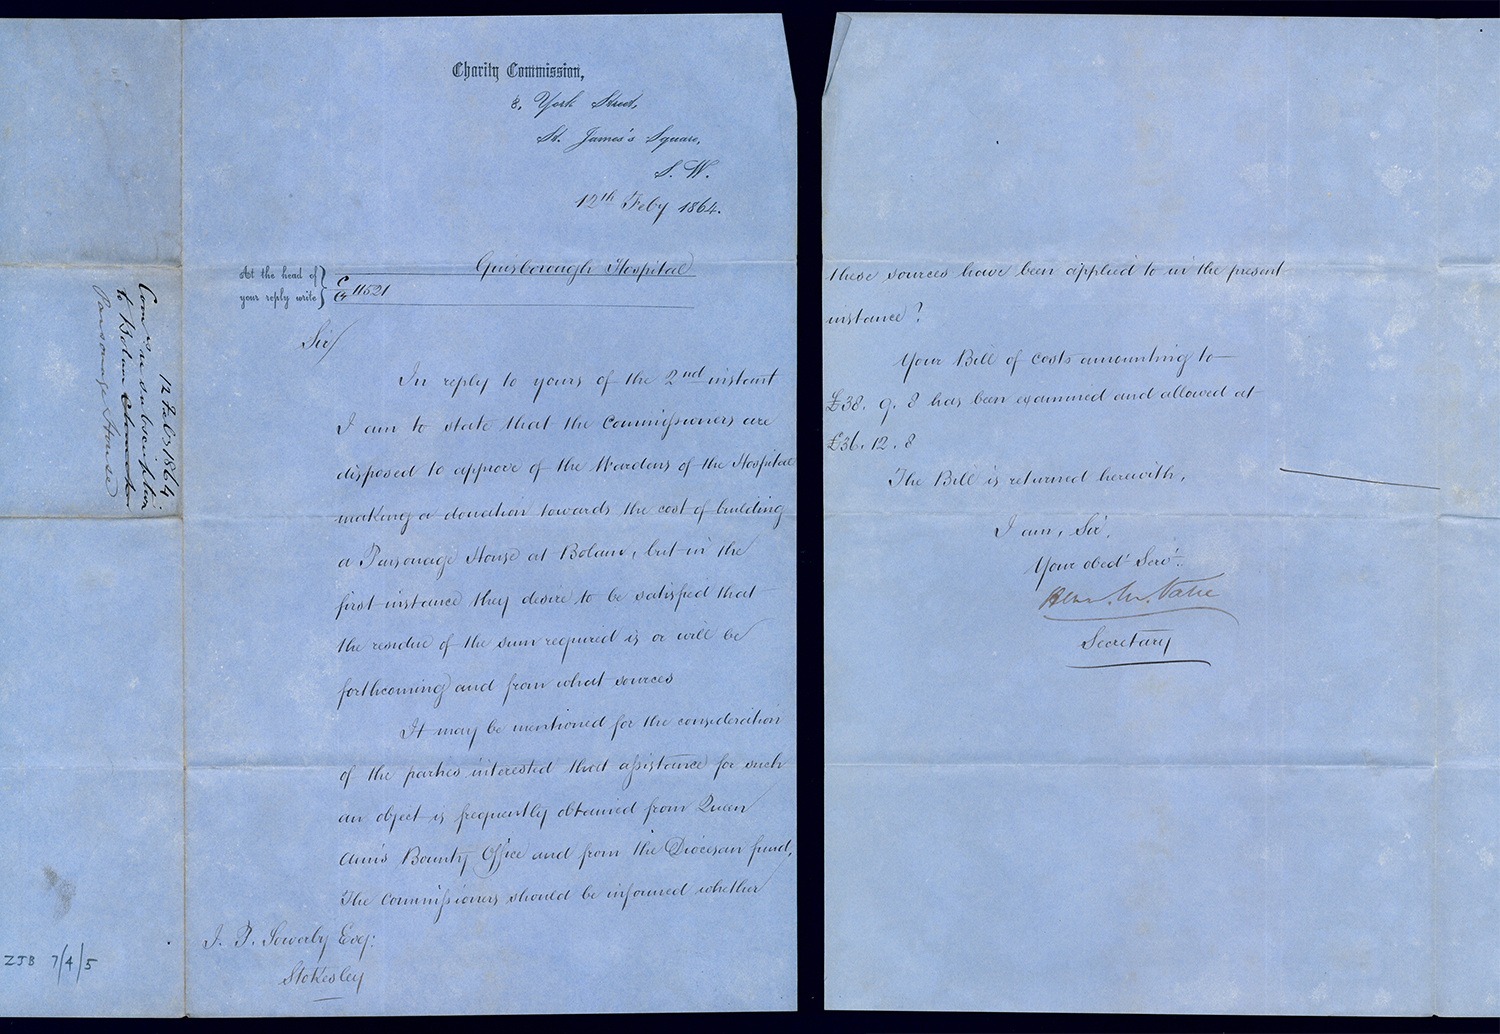 Charity Commission,
8, York Street,
St. James's Square,
S. W.
12th Feby 1864.
At the head of
your reply write
Guisborough Hospital
C
G 11521
Sir/
In reply to yours of the 2nd instant
I am to state that the Commissioners are
disposed to approve of the Wardens of the Hospital
making a donation towards the cost of building
a Parsonage House at Bolam, but in the
first instance they desire to be satisfied that
the residue of the sum required is or will be
forthcoming and from what sources
It may be mentioned for the consideration
of the parties interested that assistance for such
an object is frequently obtained from Queen
Ann's Bounty Office and from the Diocesan fund,
The Commissioners should be informed whether
J. P. Sowerby Esq:
Stokesley
these sources have been applied to in the present
instance?
Your Bill of costs amounting to
£38. 9. 8 has been examined and allowed at
£36. 12. 8
The Bill is returned herewith,
I am, Sir,
Your obedt Servt.
Secretary
12 Feby 1864.
Comrs as subscription
to Bolam
Parsonage House
ZJB 7/4/5